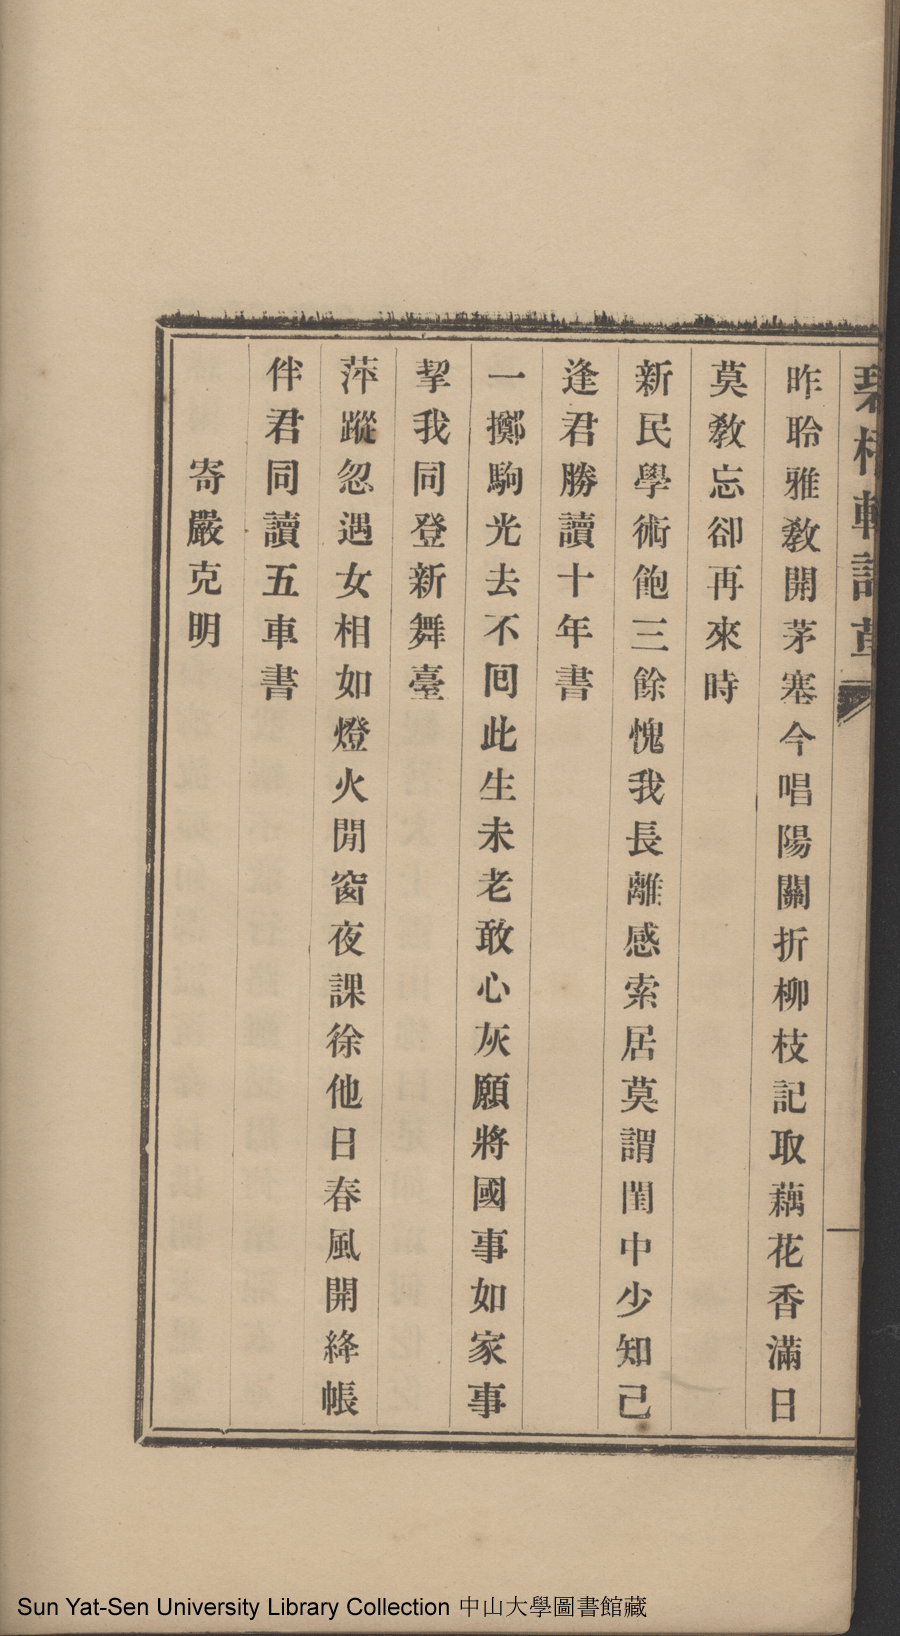 碧梧軒詩草
昨聆雅教開茅塞今唱陽關折柳枝記取藕花香滿日
莫教忘卻再來時
新民學術飽三餘愧我長離感索居莫謂閨中少知己
逢君勝讀十年書
一擲駒光去不囘此生未老敢心灰願將國事如家事
挈我同登新舞臺
萍蹤忽遇女相如燈火閒窗夜課徐他日春風開絳帳
伴君同讀五車書
寄嚴克明
Sun Yat-Sen University Library Collection 中山大學圖書館藏